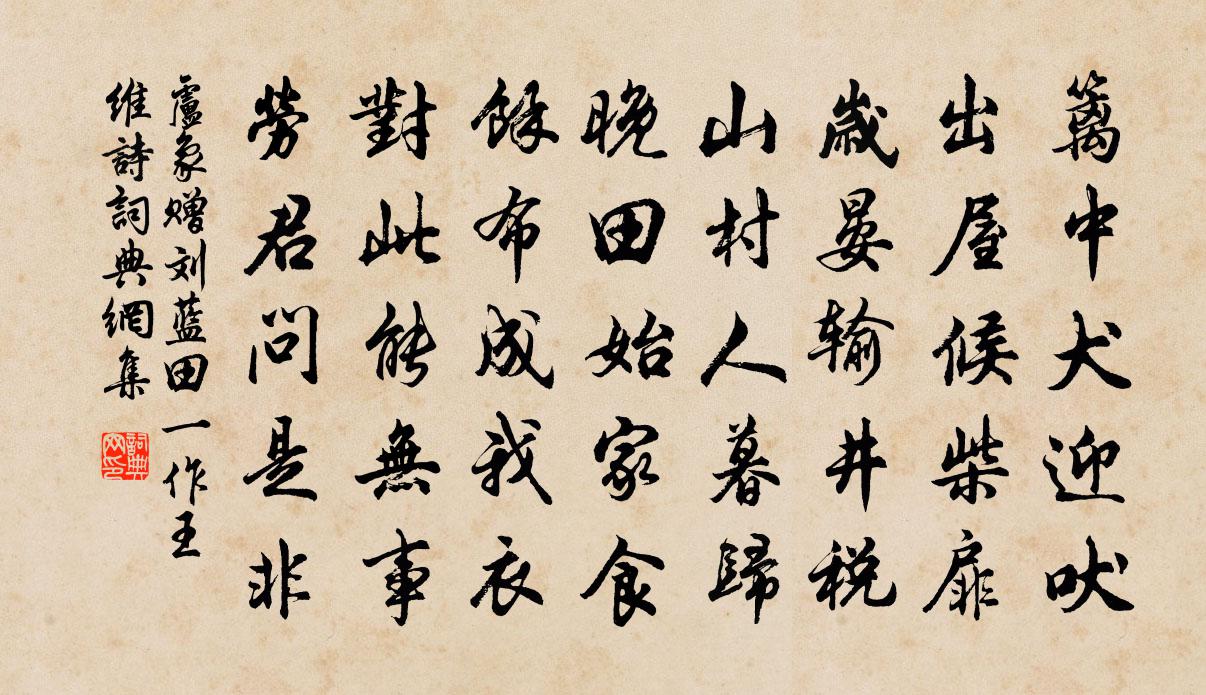 篱中犬迎吠
出屋候柴扉
歲晏輸井税
山村人暮歸
晚田始家食
餘布成我衣
對此能無事
勞君問是非
盧象贈刘藍田一作王
維詩詞典網集
詞典网印